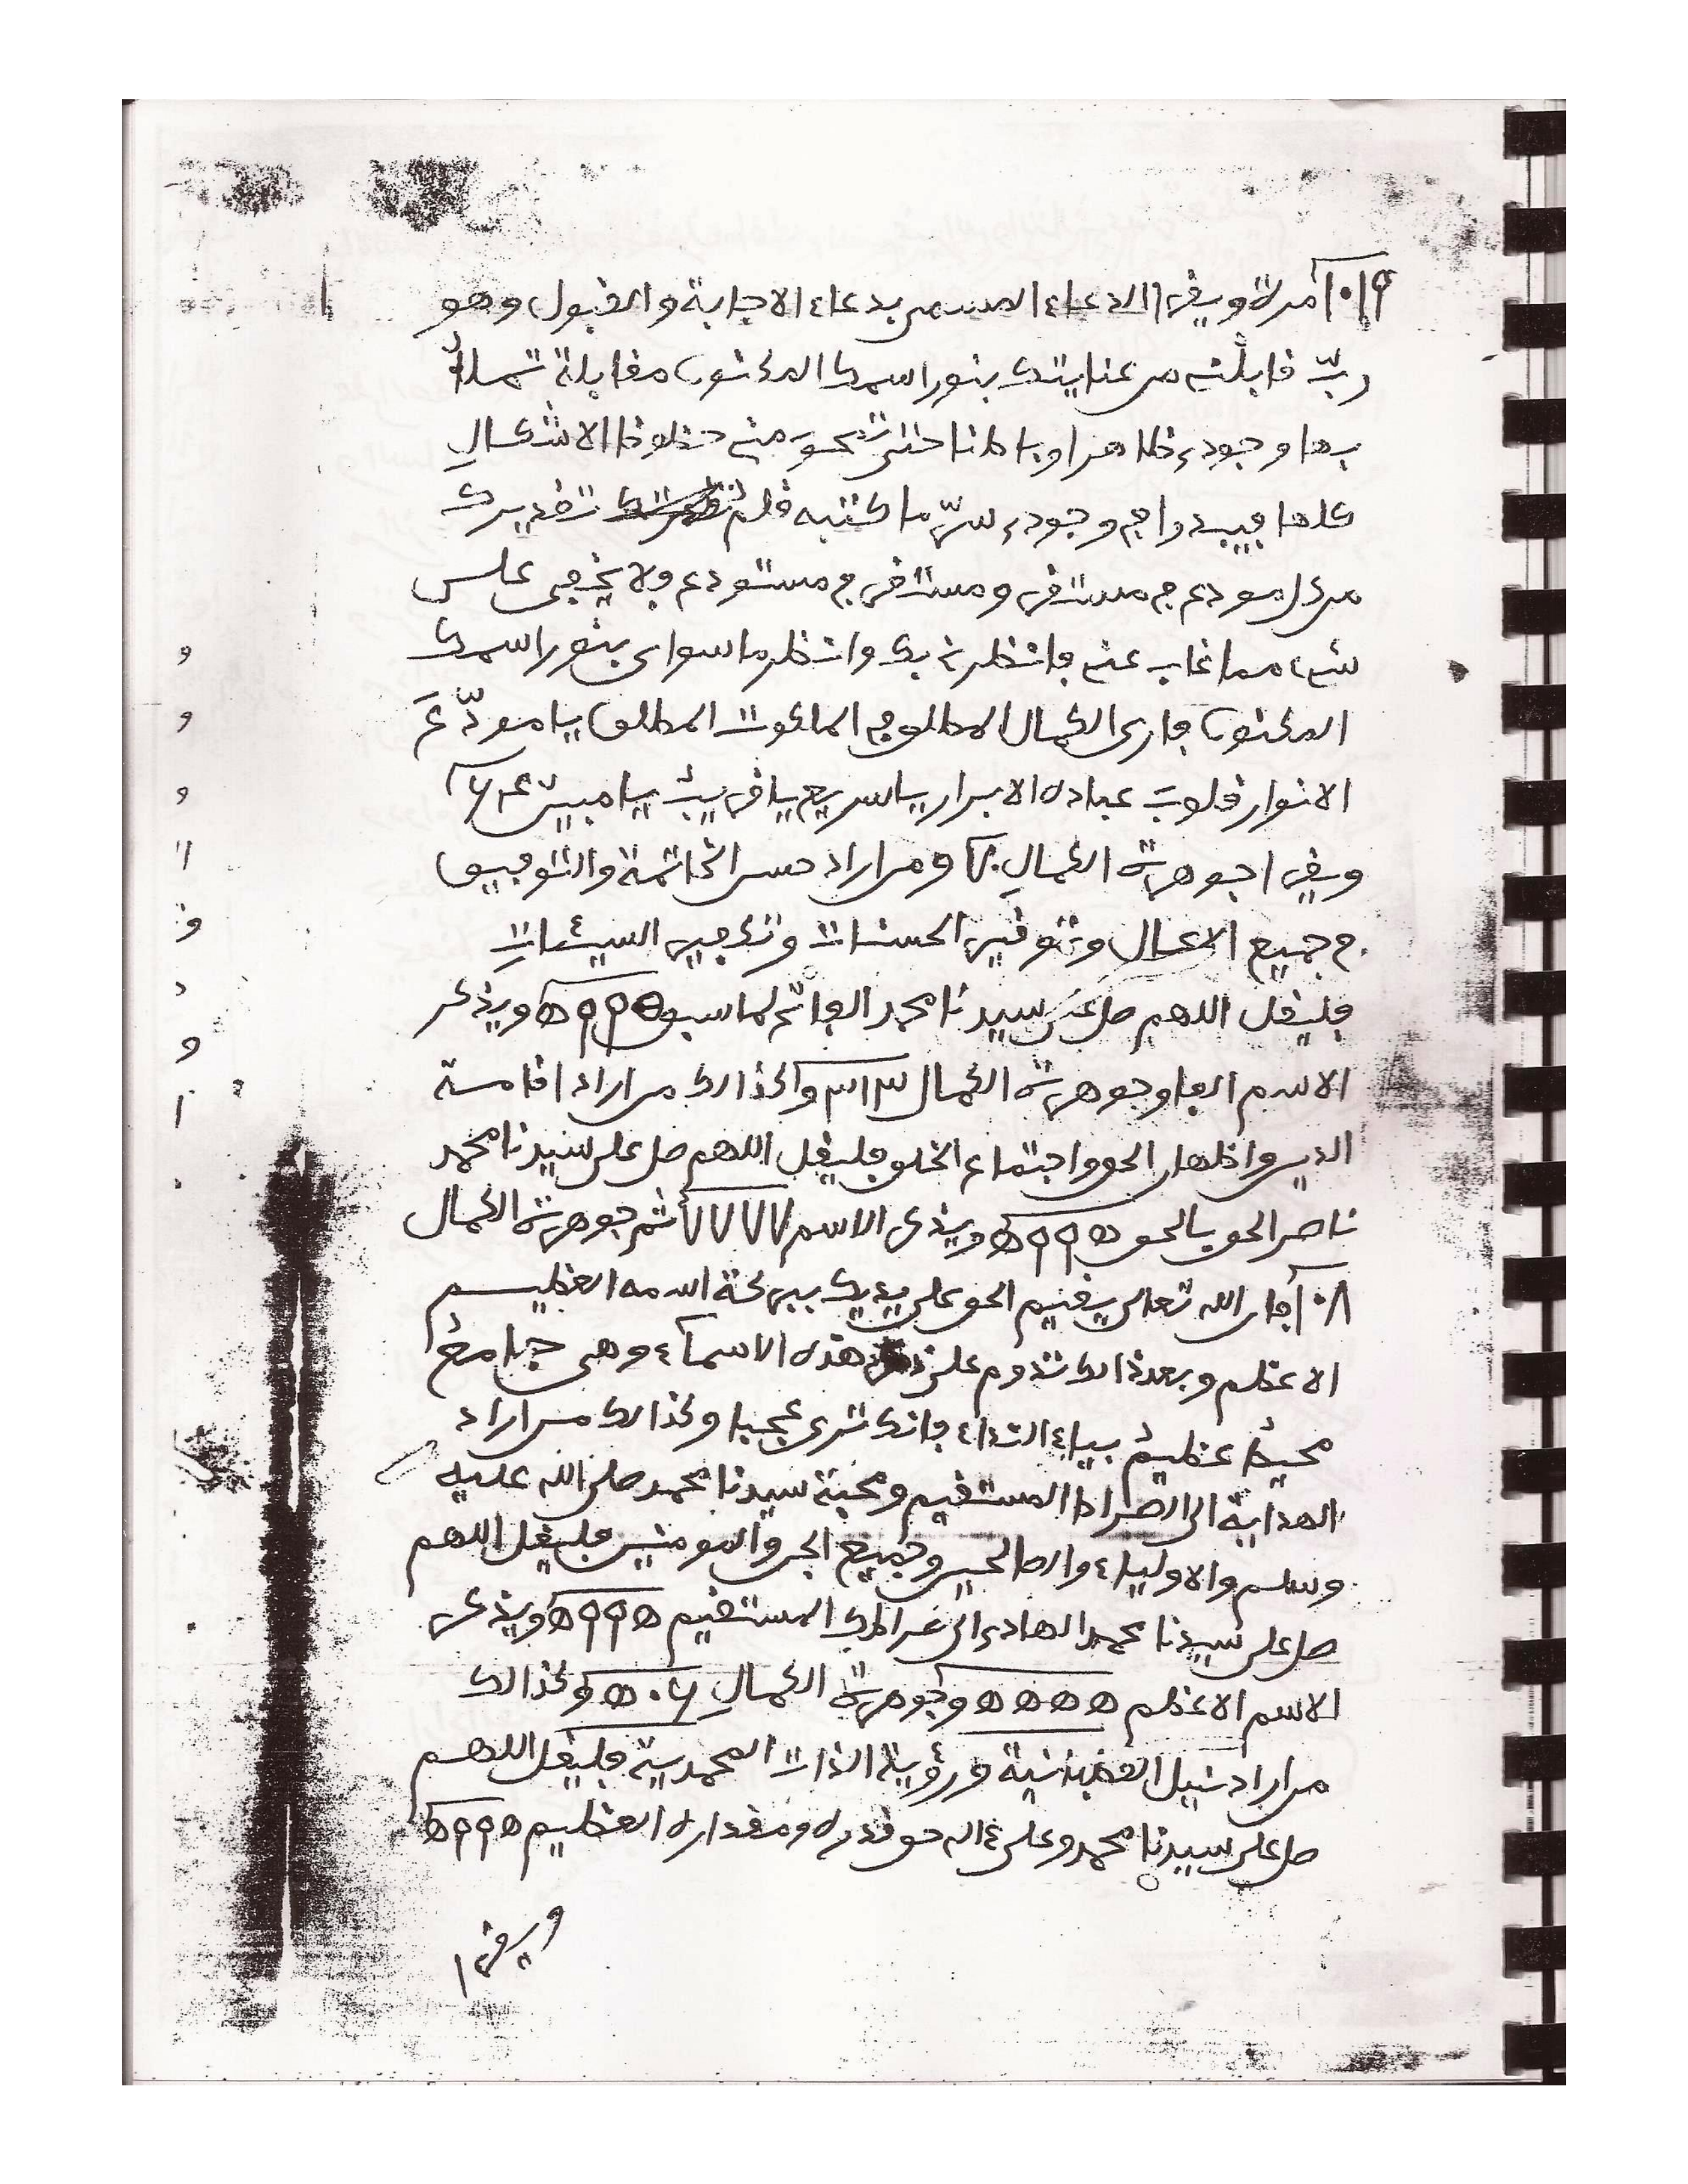 ١٠١٩ مرة ويقرا الدعاء المسمى بدعاء الاجابة والقبول وهو
ربّ قابلنى من عنايتك بنور اسمك المكنون مقابلة تملأُ
بها وجودى ظاهرا وباطنا حتى تمحوَ منى حظوظ الاشكالِ
كلها فيبدوا فى وجودى سرّ ما كتبه قلم تقديرك
من كل مودع فى مستقر ومستقر فى مستودع ولا يخفى على
شىء مما غاب عنى فانظرنى بك وانظر ما سواى بنور اسمك
المكنون فارى الكمال المطلق فى الملكوت المطلق يا مودّعَ
الانوار قلوبَ عباده الابرار يا سريع يا قريبُ يا مبين
ويقرا جوهرة الكمالِ ومن اراد حسن الخاتمة والتوفيق
فى جميع الاعمال وتوفير الحسنات وتكفير السيئاتِ
فليقل اللهم صل على سيدنا محمد الفاتح لما سبق ويذكر
الاسم الفا وجوهرة الكمال ٣١٣ وكذالك من اراد اقامة
الدين واظهار الحق واجتماع الخلق فليقل اللهم صل على سيدنا محمد
ناصر الحق بالحق ويذكر الاسم ثم جوهرة الكمال
١٠٨ فان الله تعالى يقيم الحق على يديك ببركة اسمه العظيم
الاعظم وبعد ذالك تدوم على هذه الاسماء وهى جامعُ
محيطُ عظيمُ بياء النداء فانك ترى عجبا وكذالك من اراد
الهداية الى الصراط المستقيم ومحبة سيدنا محمد صلى الله عليه
وسلم والاولياء والصالحين وجميع الجن والمومنين فليقل اللهم
صل على سيدنا محمد الهادى الى صراطك المستقيم ويذكر
الاسم الاعظم وجوهرة الكمالِ وكذالك
من اراد نيل القطبانية ورؤية الذات المحمدية فليقل اللهم
صل على سيدنا محمد وعلى ءاله حق قدره ومقداره العظيم
ويقرا